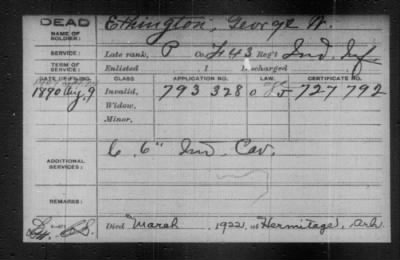 DEAD
NAME OF SOLDIER:
Ethington, George W.
SERVICE:
Late rank, P Co. F. 43 Reg't Ind. Inf
TERM OF SERVICE:
Enlisted , 1 Discharged , 1
DATE OF FILING. CLASS APPLICATION NO. LAW. CERTIFICATE NO.
1890 Aug. 9 Invalid, 793 328 727 792
Widow,
Minor,
ADDITIONAL SERVICES:
C. 6" Ind. Cav.
REMARKS:
Died March , 1922, at Hermitage, Ark